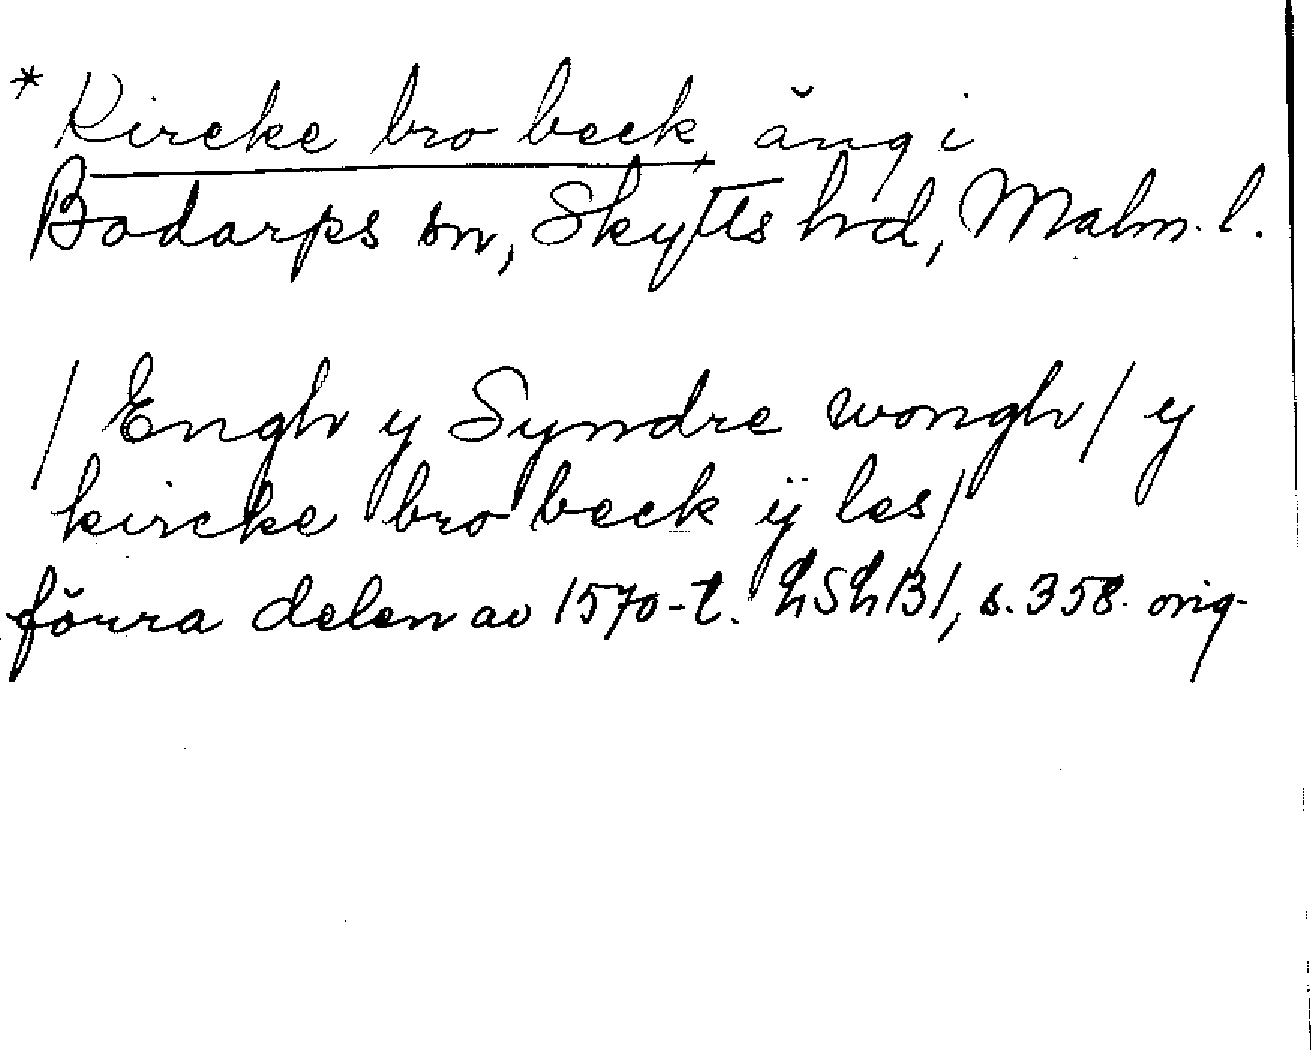 * Kircke bro beck, äng i
Bodarps sn, Skytts hd, Malm. l.
/ Engh y Syndre wongh / y
kircke bro beck ÿ les /
förra delen av 1570-t. LSLB1, s. 358. orig.